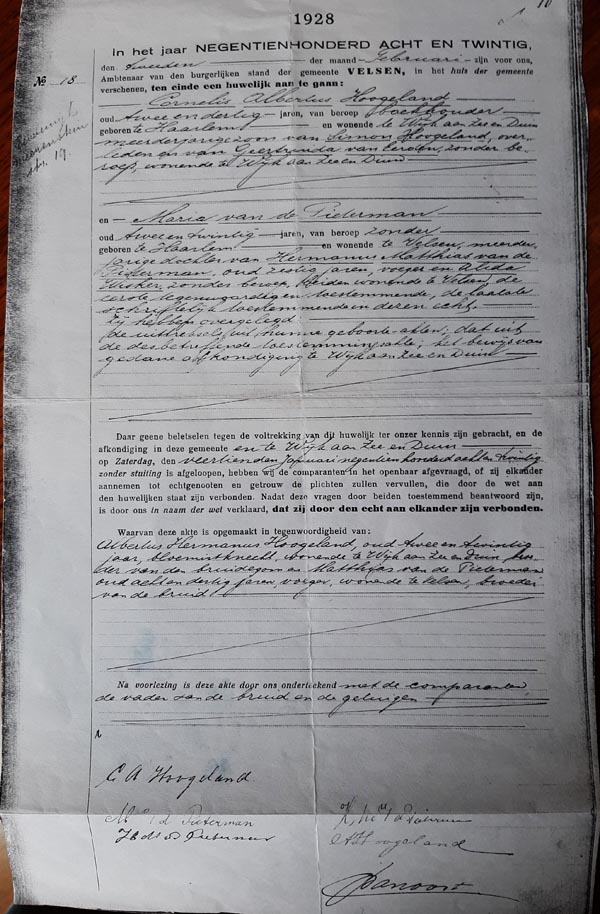 1928
10
In het jaar NEGENTIENHONDERD ACHT EN TWINTIG,
№ 18
den tweeden der maand Februari zijn voor ons,
Ambtenaar van den burgerlijken stand der gemeente VELSEN, in het huis der gemeente
verschenen, ten einde een huwelijk aan te gaan:
Cornelis Albertus Hoogeland
oud twee en dertig jaren, van beroep boekhouder
geboren te Haarlem en wonende te Wijk aan Zee en Duin
meerderjarige zoon van Simon Hoogeland, over-
leden en van Geertruida van Eerden, zonder be-
roep, wonende te Wijk aan Zee en Duin
en Maria van de Pieterman
oud twee en twintig jaren, van beroep zonder
geboren te Haarlem en wonende te Velsen, meerder
jarige dochter van Hermanus Matthias van de
Pieterman, oud zestig jaren, voeger en Alida
zonder beroep, beiden wonende te Velsen, de
eerste tegenwoordig en toestemmende, de laatste
schriftelijk toestemmende in dezen echt.
Zij hebben overgelegd:
de uittreksels uit hunne geboorteakten; dat uit
de desbetreffende toestemmingsakte; het bewijs van
gedane afkondiging te Wijk aan Zee en Duin
Daar geene beletselen tegen de voltrekking van dit huwelijk ter onzer kennis zijn gebracht, en de
afkondiging in deze gemeente en te Wijk aan Zee en Duin
op Zaterdag, den veertienden Januari negentienhonderd acht en twintig
zonder stuiting is afgeloopen, hebben wij de comparanten in het openbaar afgevraagd, of zij elkander
aannemen tot echtgenooten en getrouw de plichten zullen vervullen, die door de wet aan
den huwelijken staat zijn verbonden. Nadat deze vragen door beiden toestemmend beantwoord zijn,
is door ons in naam der wet verklaard, dat zij door den echt aan elkander zijn verbonden.
Waarvan deze akte is opgemaakt in tegenwoordigheid van:
Albertus Hermanus Hoogeland, oud twee en twintig
jaar, bloemistknecht, wonende te Wijk aan Zee en Duin, broe-
der van den bruidegom en Matthijs van de Pieterman
oud acht en dertig jaren, voeger, wonende te Velsen, broeder
van de bruid
Na voorlezing is deze akte door ons onderteekend met de comparanten,
de vader van de bruid en de getuigen
C A Hoogeland
M v d Pieterman
v d Pieterman
A H Hoogeland